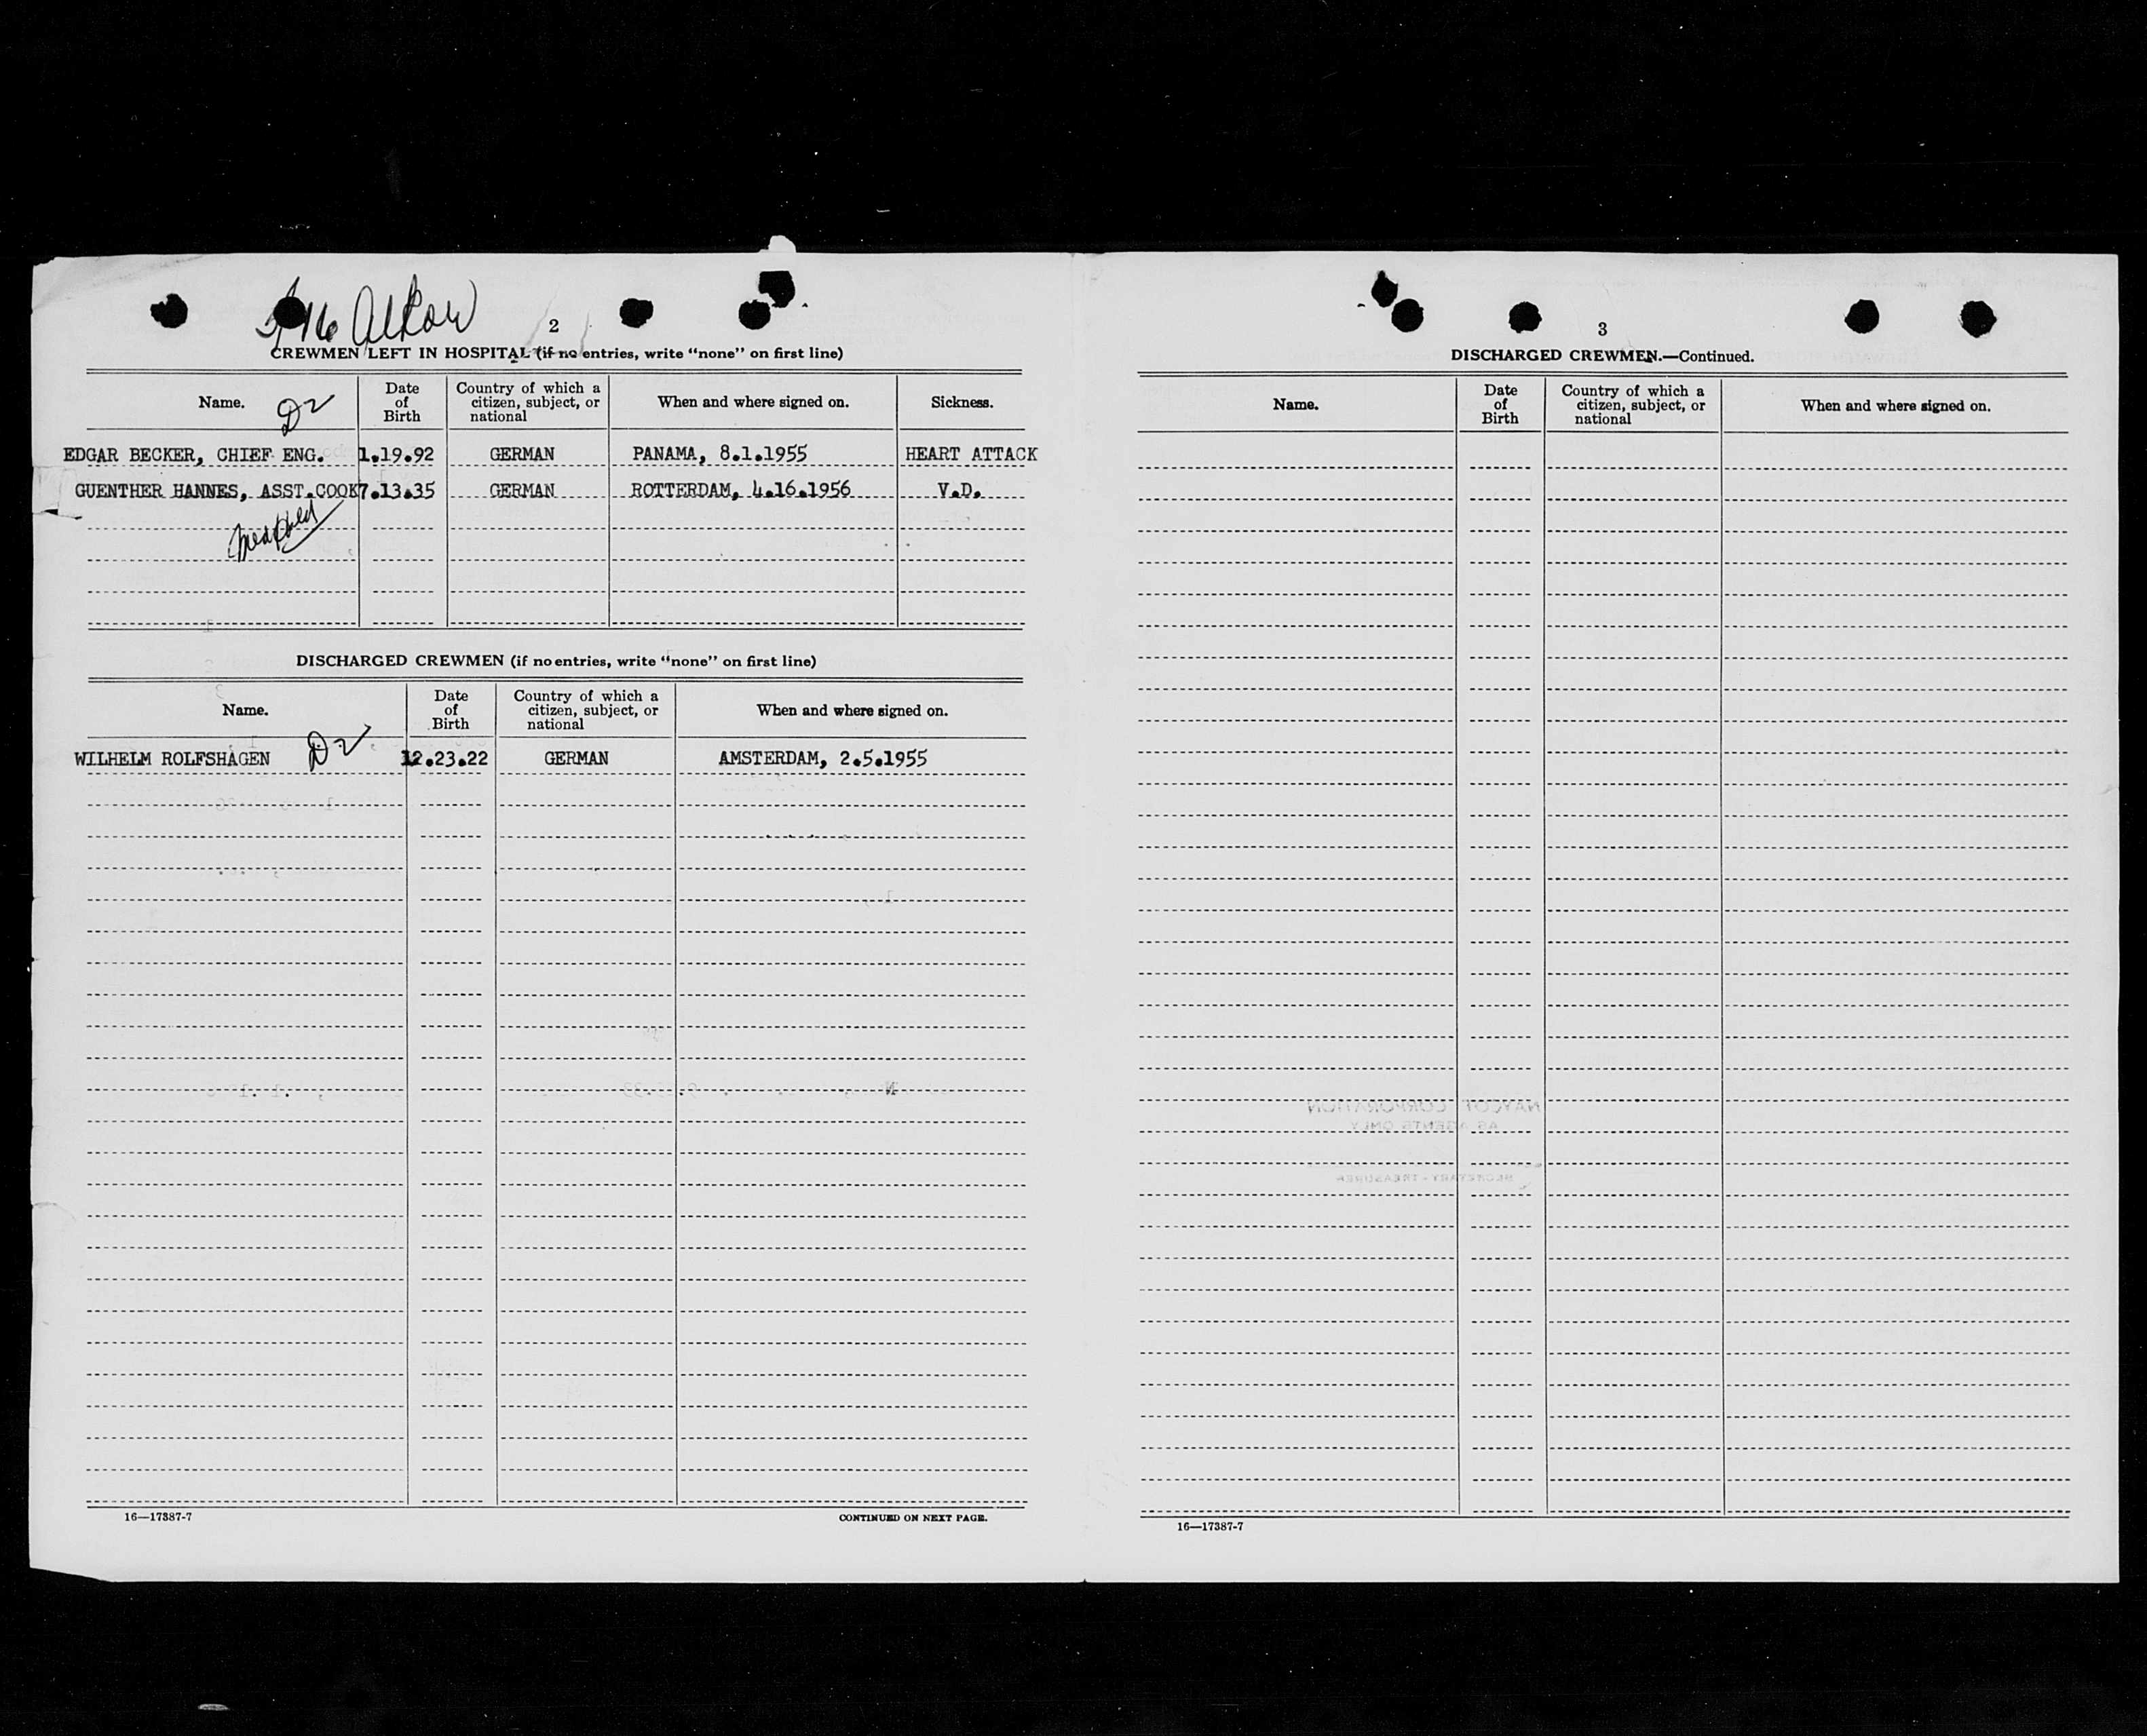 2
CREWMEN LEFT IN HOSPITAL (if no entries, write "none" on first line)
Name. D2
Date of Birth
Country of which a citizen, subject, or national
When and where signed on.
Sickness.
EDGAR BECKER, CHIEF ENG. 1.19.92 GERMAN PANAMA, 8.1.1955 HEART ATTACK
GUENTHER HANNES, ASST.COOK 7.13.35 GERMAN ROTTERDAM, 4.16.1956 V.D.
DISCHARGED CREWMEN (if no entries, write "none" on first line)
Name.
Date of Birth
Country of which a citizen, subject, or national
When and where signed on.
WILHELM ROLFSHAGEN D2 12.23.22 GERMAN AMSTERDAM, 2.5.1955
16—17387-7 CONTINUED ON NEXT PAGE.
3
DISCHARGED CREWMEN.—Continued.
Name.
Date of Birth
Country of which a citizen, subject, or national
When and where signed on.
CORPORATION
AS AGENTS ONLY
SECRETARY-TREASURER
16—17387-7